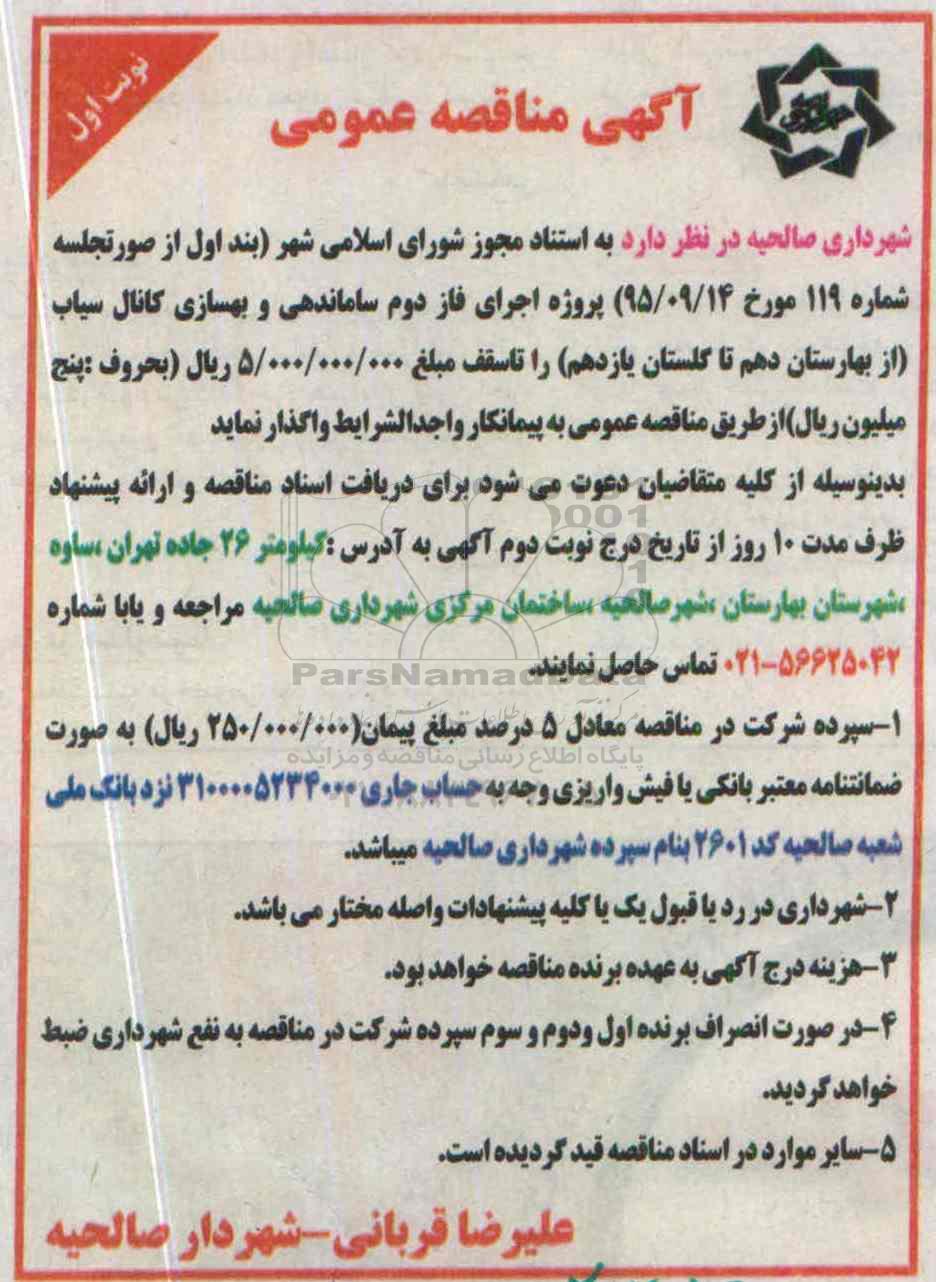 نوبت اول
آگهی مناقصه عمومی
شهرداری صالحیه در نظر دارد به استناد مجوز شورای اسلامی شهر (بند اول از صورتجلسه
شماره ۱۱۹ مورخ ۹۵/۰۹/۱۴) پروژه اجرای فاز دوم ساماندهی و بهسازی کانال سیاب
(از بهارستان دهم تا گلستان یازدهم) را تاسقف مبلغ ۵/۰۰۰/۰۰۰/۰۰۰ ریال (بحروف :پنج
میلیون ریال)ازطریق مناقصه عمومی به پیمانکار واجدالشرایط واگذار نماید
بدینوسیله از کلیه متقاضیان دعوت می شود برای دریافت اسناد مناقصه و ارائه پیشنهاد
ظرف مدت ۱۰ روز از تاریخ درج نوبت دوم آگهی به آدرس :کیلومتر ۲۶ جاده تهران ،ساوه
،شهرستان بهارستان ،شهرصالحیه ،ساختمان مرکزی شهرداری صالحیه مراجعه و یابا شماره
۰۲۱-۵۶۶۲۵۰۴۲ تماس حاصل نمایند.
ParsNamadData
۱-سپرده شرکت در مناقصه معادل ۵ درصد مبلغ پیمان(۲۵۰/۰۰۰/۰۰۰ ریال) به صورت
پایگاه اطلاع رسانی مناقصه و مزایده
ضمانتنامه معتبر بانکی یا فیش واریزی وجه به حساب جاری ۳۱۰۰۰۰۵۲۳۴۰۰۰ نزد بانک ملی
شعبه صالحیه کد ۲۶۰۱ بنام سپرده شهرداری صالحیه میباشد.
۲-شهرداری در رد یا قبول یک یا کلیه پیشنهادات واصله مختار می باشد.
۳-هزینه درج آگهی به عهده برنده مناقصه خواهد بود.
۴-در صورت انصراف برنده اول ودوم و سوم سپرده شرکت در مناقصه به نفع شهرداری ضبط
خواهد گردید.
۵-سایر موارد در اسناد مناقصه قید گردیده است.
علیرضا قربانی-شهردار صالحیه